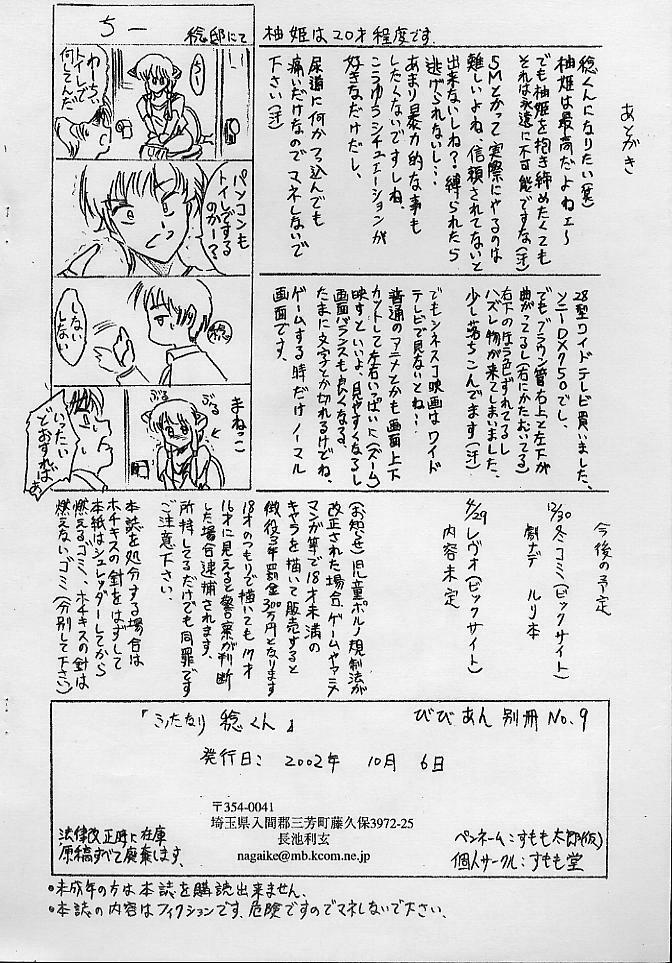 あとがき
柚姫は20才程度です.
稔くんになりたい(笑)
柚姫は最高だよねェ〜
でも柚姫を抱き締めたくても
それは永遠に不可能ですな(汗)
SMとかって実際にやるのは
難しいよね、信頼されてないと
出来ないしね?縛られたら
逃げられないし…
あまり暴力的な事も
したくないですしね、
こうゆうシチュエーションが
好きなだけだし、
尿道に何かつっ込んでも
痛いだけなのでマネしないで
下さい(汗)
28型ワイドテレビ買いました、
ソニーDX750でし、
でもブラウン管右上と左下が
曲がってるし(右にかたむいてる)
右下の方う色ずれてるし
ハズレ物が来てしまいました、
少し落ちこんでます(汗)
でもシネスコ映画はワイド
テレビで見ないとね…
普通のアニメとかも画面上下
カットして左右いっぱいに(ズーム)
映すといいよ、見やすくなるし
画面バランスも良くなる、
たまに文字とか切れるけどね、
ゲームする時だけノーマル
画面です、
ちー
稔邸にて
ちぃ〜
わーちぃ
トイレで
何してんだ
パソコンも
トイレでする
のかー?
しない
しない
稔
まねっこ
ぶる
ぶる
いったい
どおすれば
ぁ
今後の予定
12/30冬コミ(ビックサイト)
劇ナデ ルリ本
4/29レヴォ(ビックサイト)
内容未定
(お知らせ)児童ポルノ規制法が
改正された場合、ゲームやアニメ
マンガ等で18才未満の
キャラを描いて販売すると
懲役3年罰金300万円となります
18才のつもりで描いても17才
16才に見えると警察が判断
した場合逮捕されます、
所持してるだけでも同罪です
ご注意下さい、
本誌を処分する場合は
ホチキスの針をはずして
本紙はシュレッダーしてから
燃えるゴミ、ホチキスの針は
燃えないゴミ(分別して下さい)
『ふたなり 稔くん』
びびあん 別冊 No.9
発行日: 2002年 10月 6日
〒354-0041
埼玉県入間郡三芳町藤久保3972-25
長池利玄
nagaike@mb.kcom.ne.jp
法律改正時に在庫
原稿すべて廃棄します.
ペンネーム:すもも太郎(仮)
個人サークル:すもも堂
•未成年の方は本誌を購読出来ません.
•本誌の内容はフィクションです、危険ですのでマネしないで下さい.